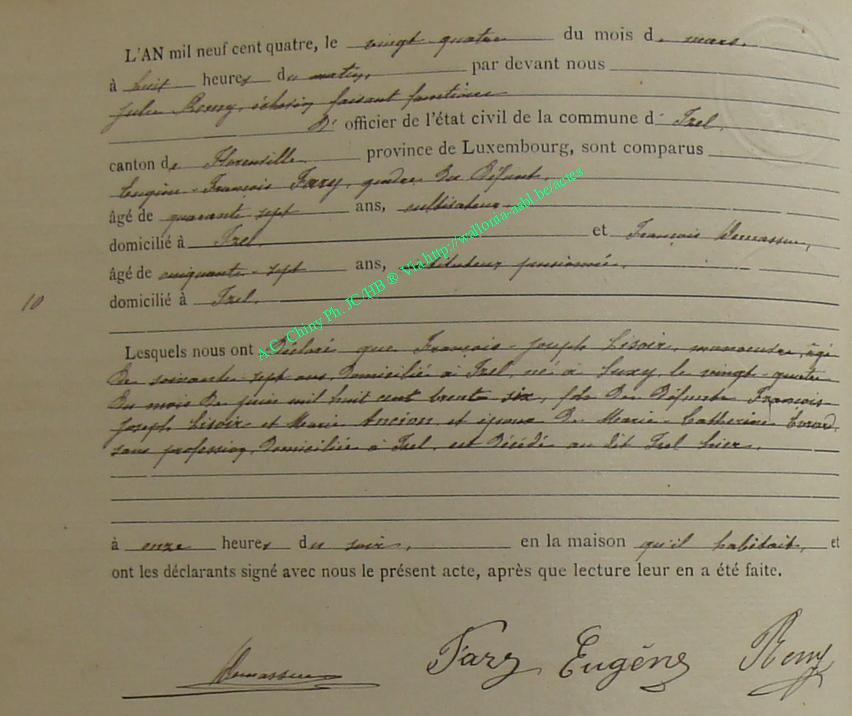 L'AN mil neuf cent quatre, le vingt quatre du mois de mars,
à huit heures du matin, par devant nous
Jules Remy, échevin faisant fonctions
D' officier de l'état civil de la commune d' Izel,
canton de Florenville province de Luxembourg, sont comparus
Eugène-François Fazy, gendre du Défunt,
âgé de quarante sept ans, cultivateur
domicilié à Izel et François
âgé de cinquante-sept ans, instituteur pensionné,
domicilié à Izel.
10
Lesquels nous ont Déclaré que François-Joseph Lisoir, manoeuvre, âgé
De soixante sept ans, Domicilié à Izel, né à Suxy, le vingt-quatre
Du mois De juin mil huit cent trente six, fils Des Défunts François-
Joseph Lisoir et Marie Ancion et époux De Marie-Catherine Evrard,
sans profession, Domiciliée à Izel, est Décédé au dit Izel hier,
à onze heures du soir, en la maison qu'il habitait, et
ont les déclarants signé avec nous le présent acte, après que lecture leur en a été faite.
Fazy Eugène Remy
A.C. Chiny Ph. JC/HB ® Via http://wallonia-asbl.be/actes